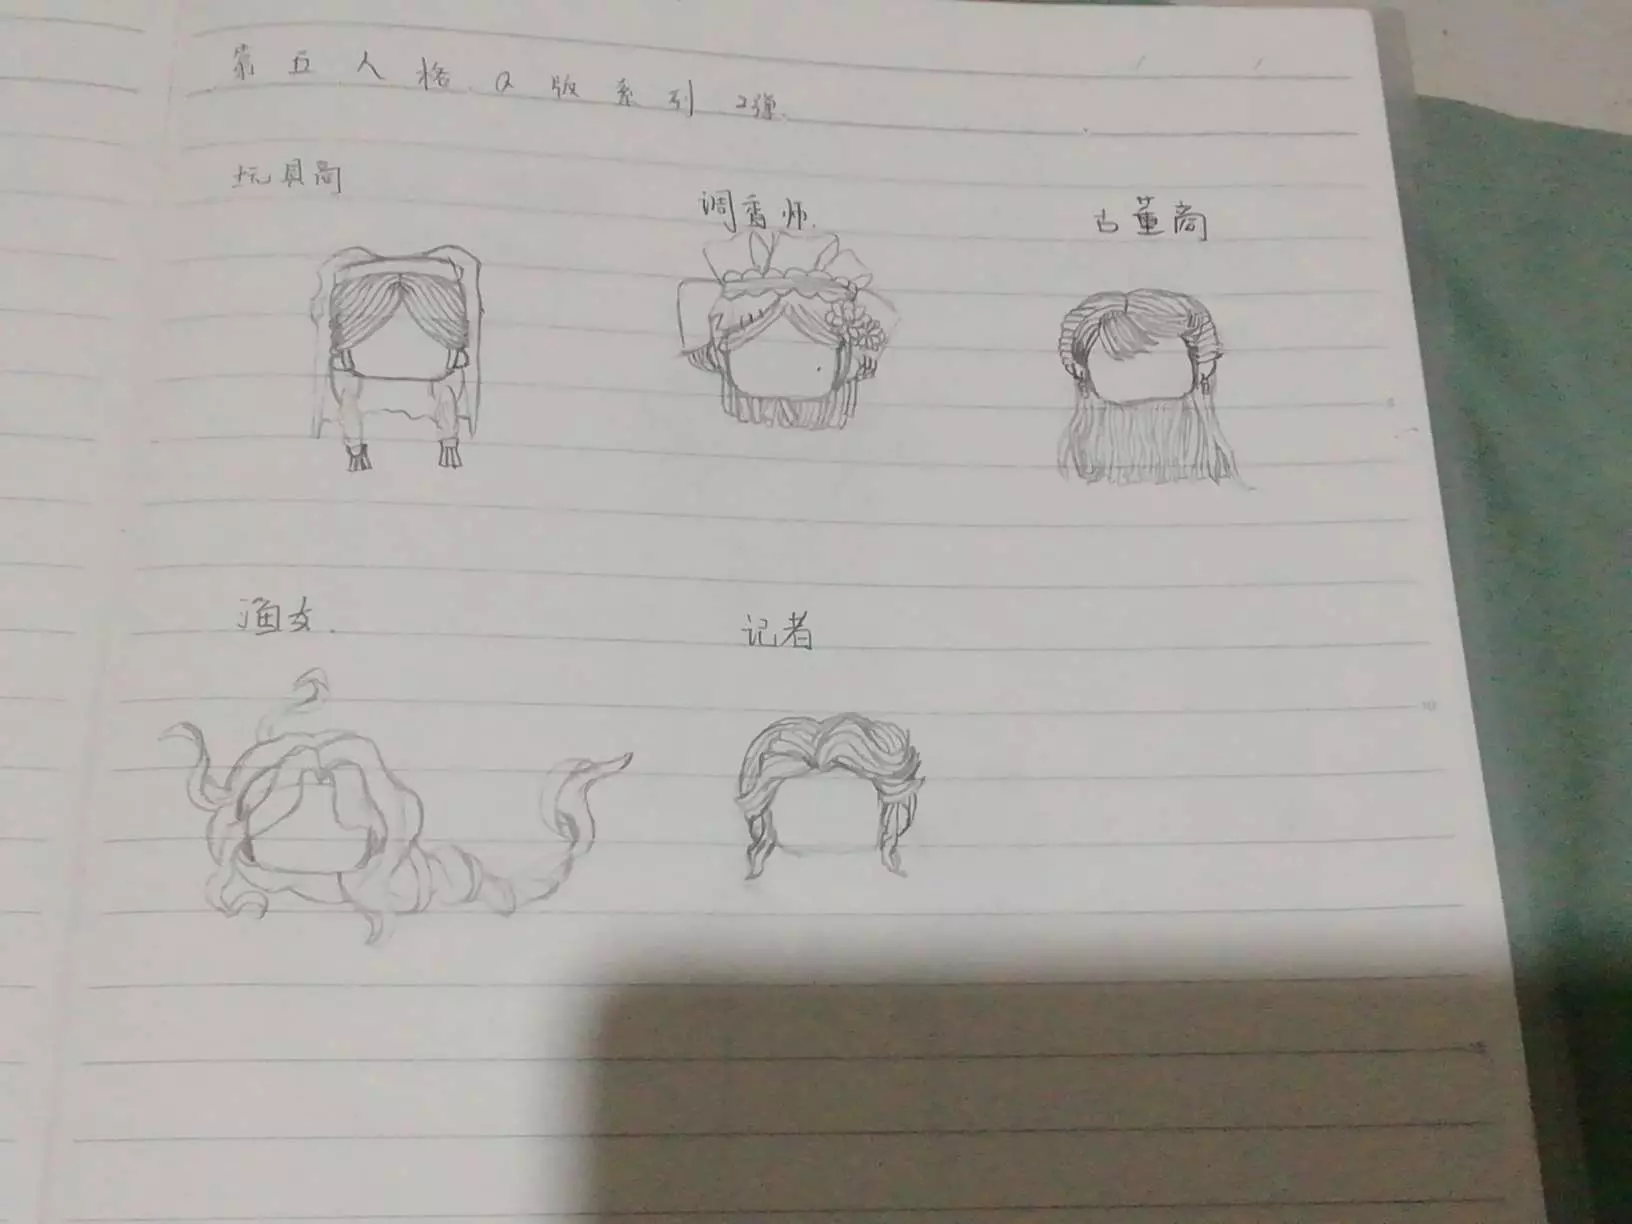 第五人格Q版系列2弹.
玩具商
调香师.
古董商
渔女.
记者